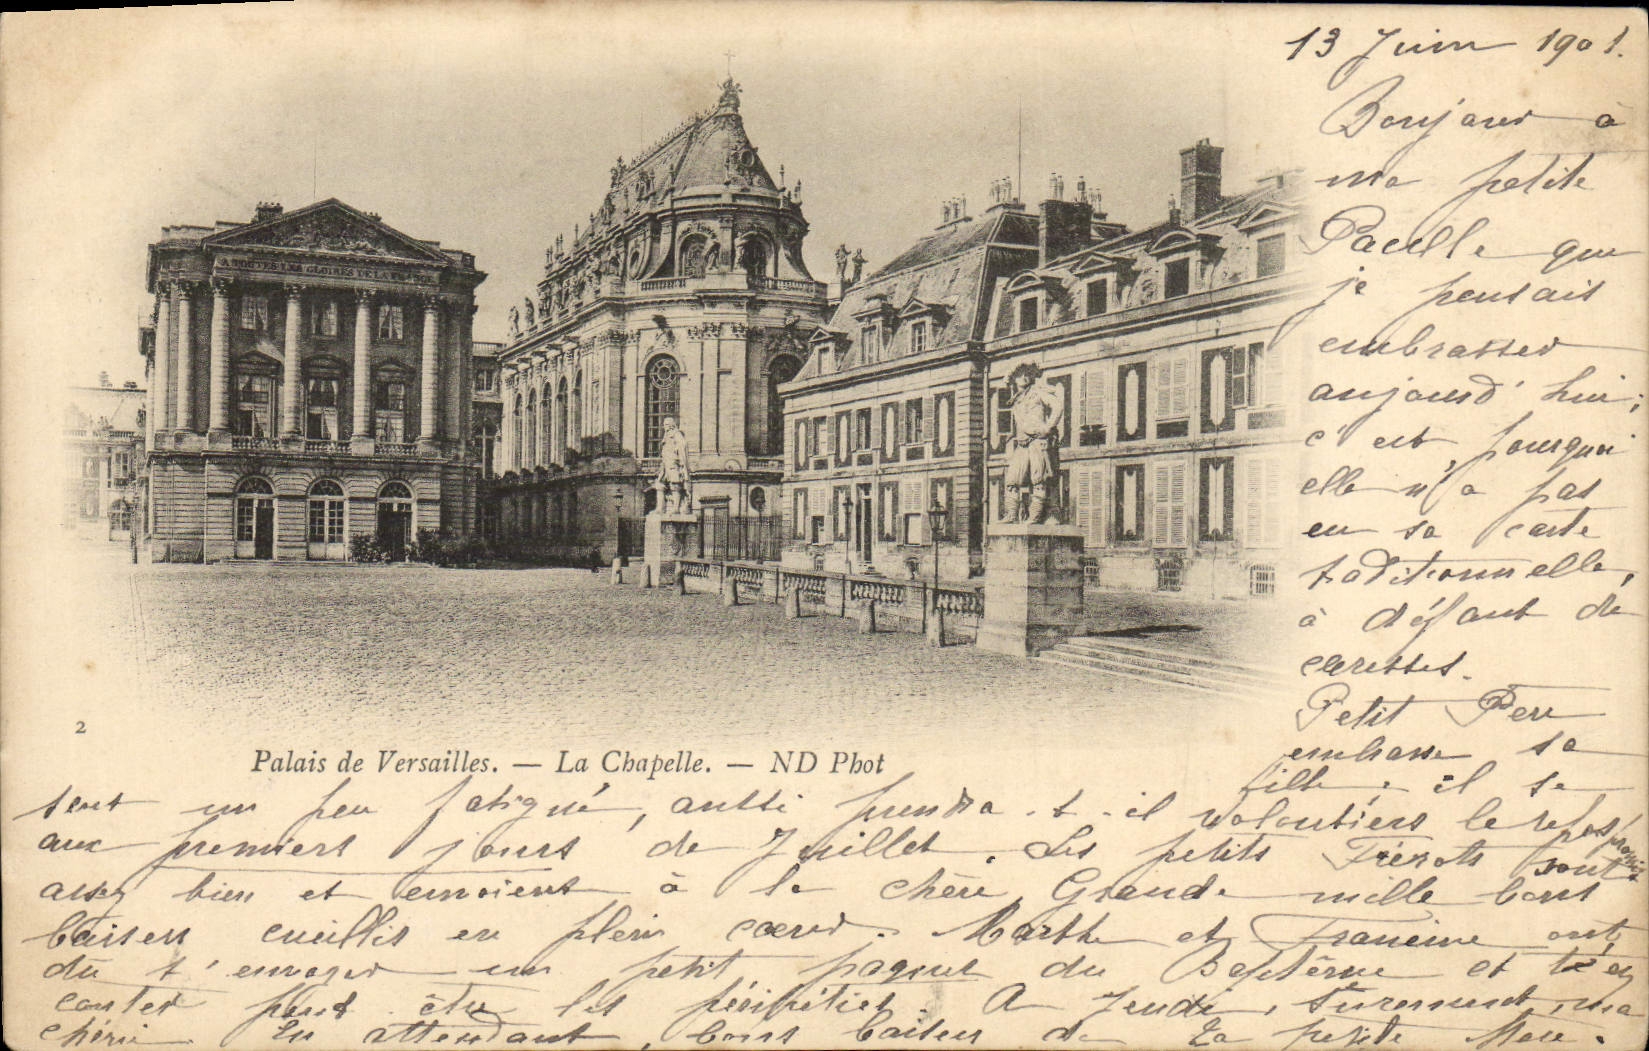 13 Juin 1901.
Bonjour à
ma petite
que
je pensais
embrasser
aujourd'hui;
c'est pourquoi
elle n'a pas
eu sa carte
traditionnelle,
à défaut de
caresses.
Petit Père
embrasse sa
fille; il se
A TOUTES LES GLOIRES DE LA FRANCE
2
Palais de Versailles. — La Chapelle. — ND Phot
sent un peu fatigué, aussi prendra-t-il volontiers le repos promis
aux premiers jours de Juillet. Les petits Frérots sont
assez bien et envoient à la chère Grande mille bons
baisers cueillis en plein cœur. Marthe et Francine ont
dû t'envoyer un petit paquet du Baptême et t'en
conter peut être les péripéties. A Jeudi, sûrement, ma
chérie. En attendant, bons baisers de Ta petite Mère.